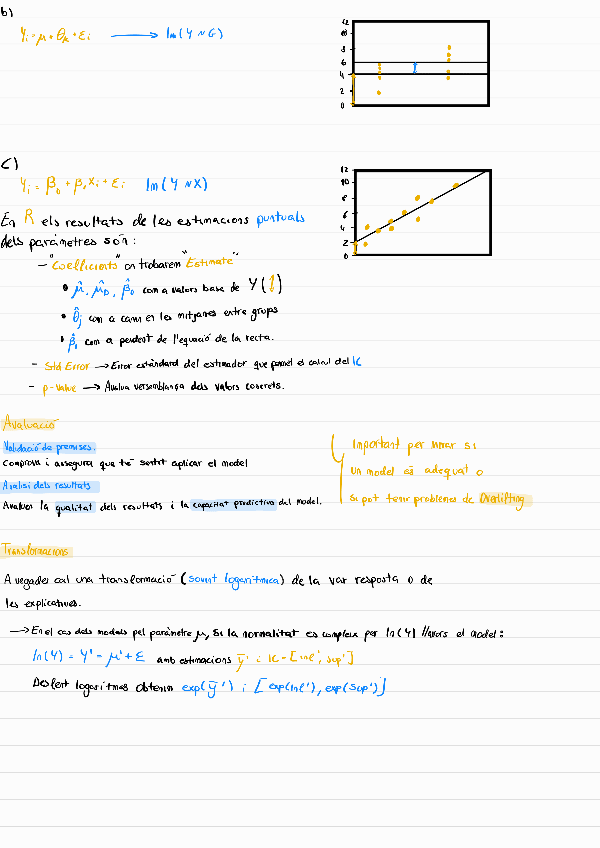 b)
Yi = μ + θk + εi → lm(Y ~ G)
12
10
8
6
4
2
0
c)
Yi = β0 + β1Xi + εi lm(Y ~ X)
12
10
8
6
4
2
0
En R els resultats de les estimacions puntuals
dels paràmetres són:
- "Coefficients" on trobarem "Estimate"
• μ̂, μ̂0, β̂0 com a valors base de Y (↕)
• θ̂j com a canvi en les mitjanes entre grups
• β̂1 com a pendent de l'equació de la recta.
- Std. Error → Error estàndard del estimador que permet el calcul del IC
- p-value → Avalua versemblança dels valors concrets.
Avaluació
Validació de premises.
Comprova i assegura que té sentit aplicar el model
Analisi dels resultats
Avaluar la qualitat dels resultats i la capacitat predictiva del model.
Important per mirar si
un model és adequat o
si pot tenir problemes de Overfitting
Transformacions
A vegades cal una transformació (sovint logarítmica) de la var resposta o de
les explicatives.
→ En el cas dels models pel paràmetre μ, si la normalitat es compleix per ln(Y) llavors el model:
ln(Y) = Y' = μ' + ε amb estimacions ȳ' i IC = [inf', sup']
Desfent logaritmes obtenim exp(ȳ') i [exp(inf'), exp(sup')]